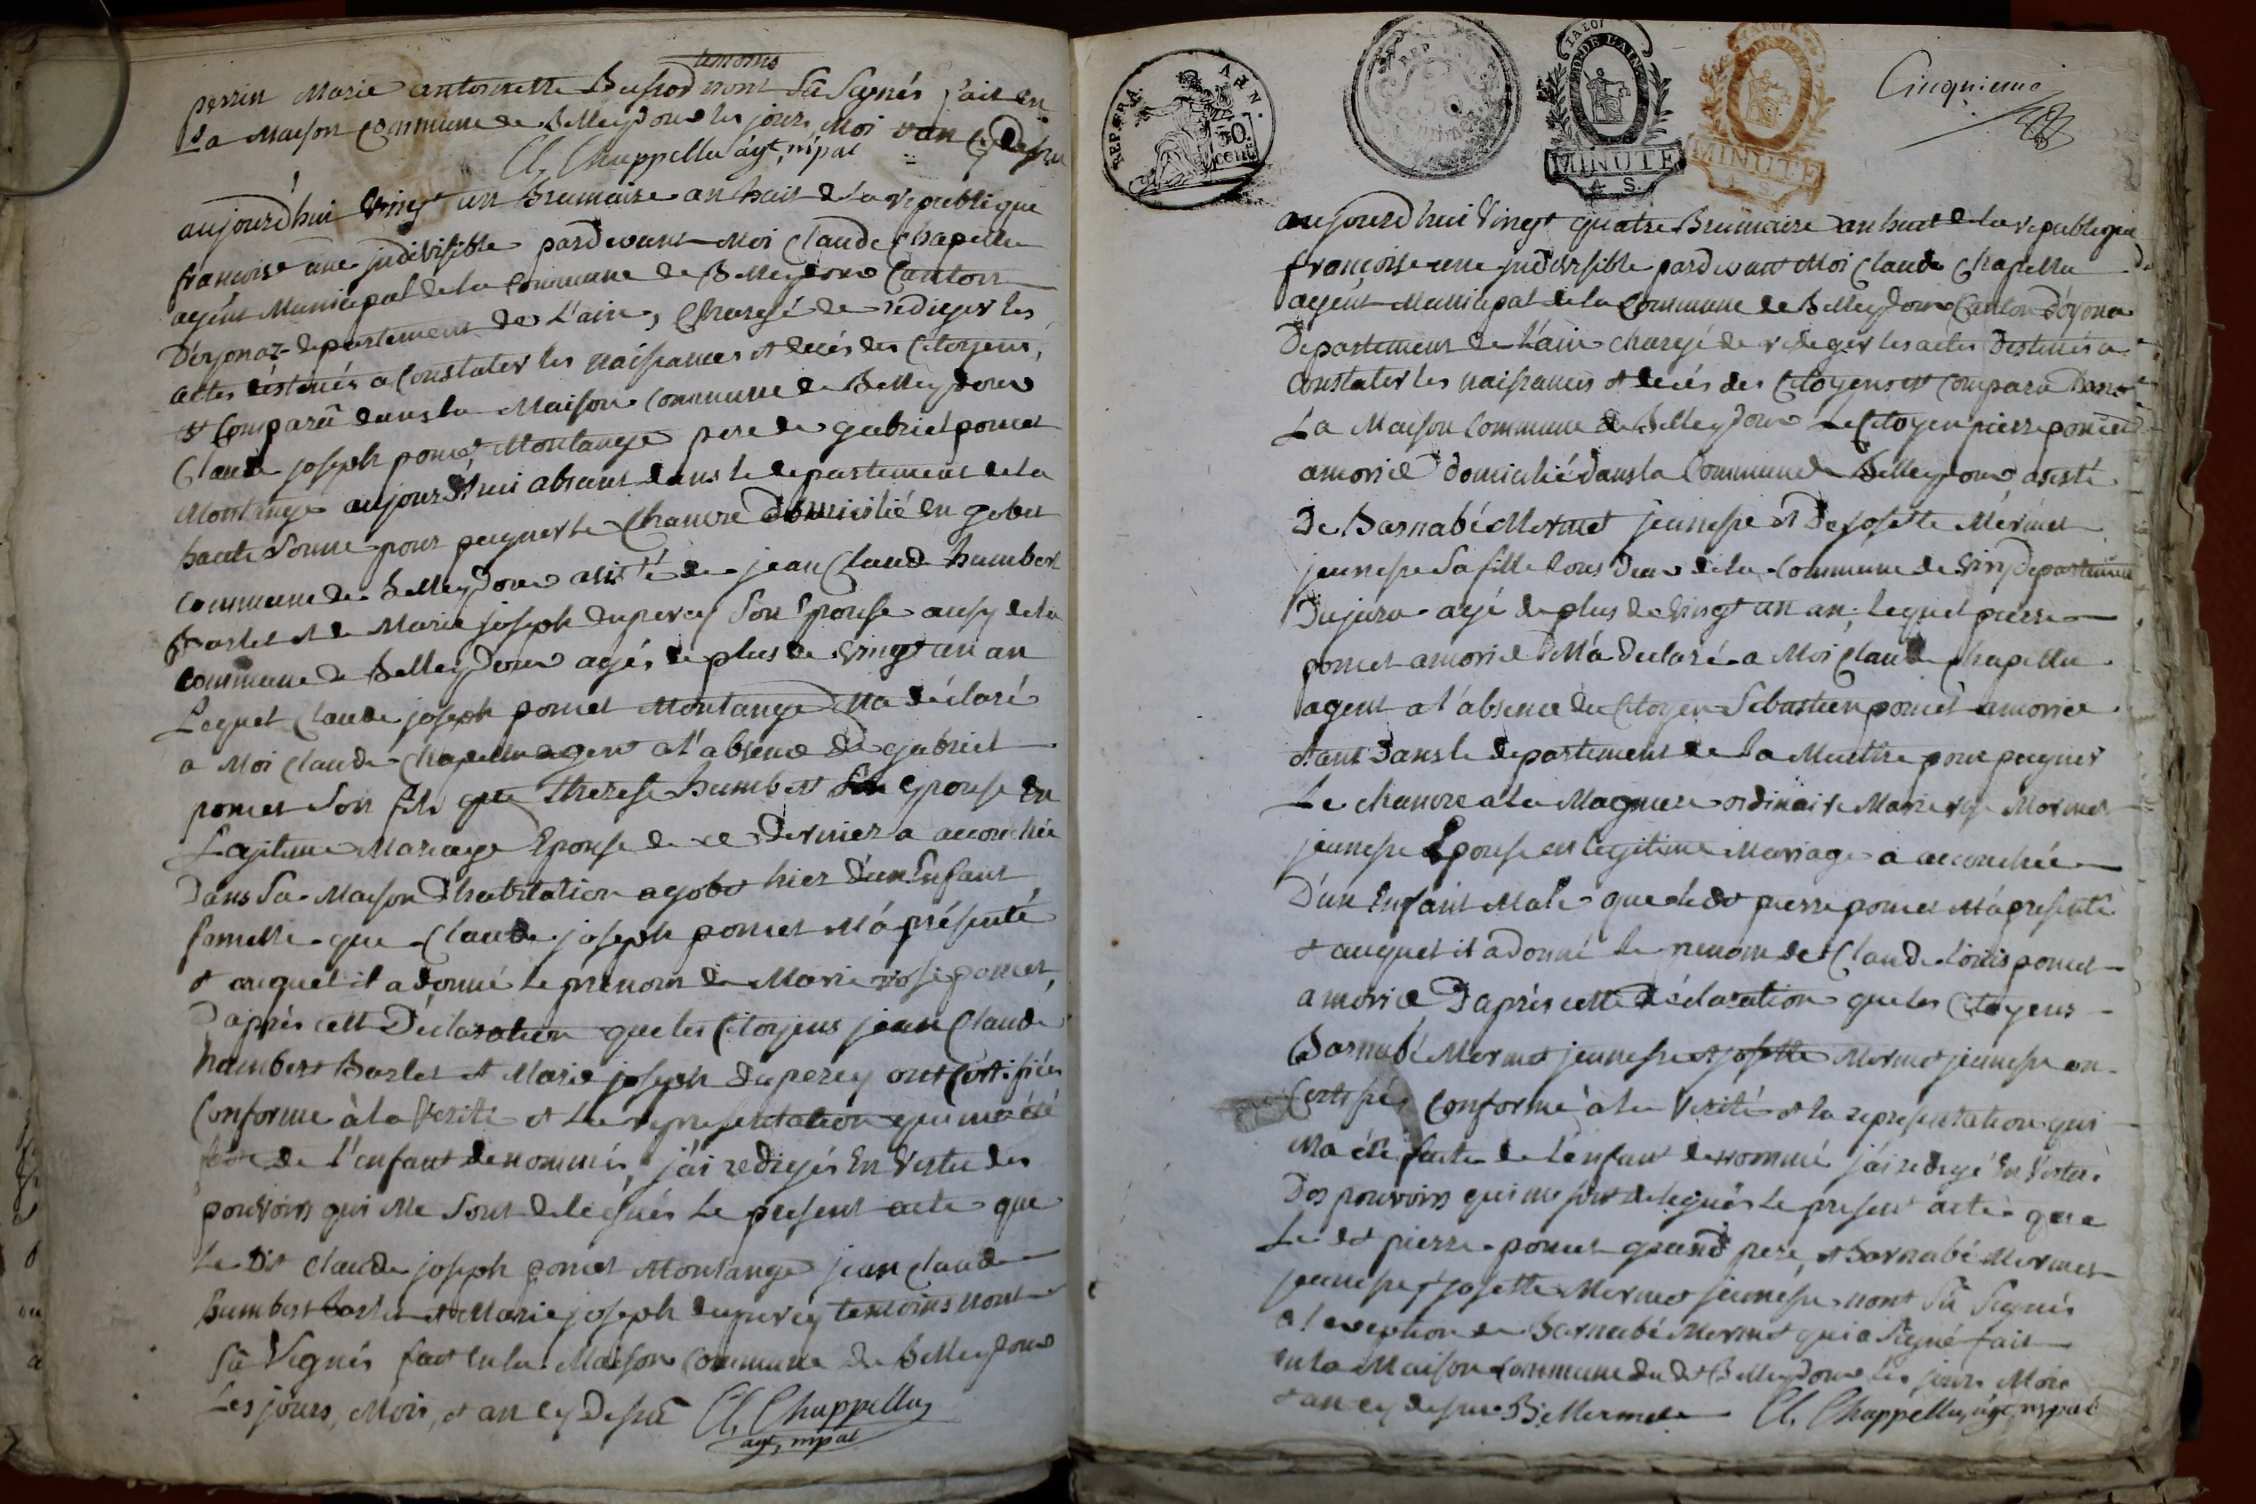 temoins
perrin Marie antoinette Bussod nont Sû Signés fait en
La Maison Commune de Belleydoux les jours, Moi et an Cy dessu
Cl. Chappellu agt, mpal
aujourd'hui Vingt un Brumaire an huit de la republique
francoise une indivisible pardevant Moi Claude Chapellu
agent Municipal de la Commune de Belleydoux Canton
D'oyonaz departement de L'ain, Chargé de rediger les
actes déstinés a Constater les naissances et decés des Citoyens,
est Comparû dans la Maison Commune de Belleydoux
Claude joseph poncet Montange pere de gabriel poncet
Montange aujourd'hui absent dans le departement de la
haute Sonne pour peigner le Chanvre domicilié en gobet
Commune de Belleydoux asisté de jean Claude humbert
Barlet et de Marie joseph duperey Son Epouse aussy de la
Commune de Belleydoux agés de plus de Vingt un an
Lequel Claude joseph poncet Montange Ma déclaré
a Moi Claude Chapellu agent a l'absence de gabriel
poncet Son fils que Therese humbert Son Epouse En
Legitime Mariage Epouse de ce dernier a accouchée
Dans Sa Maison D'habitation a gobet hier d'un Enfant
famelle que Claude joseph poncet M'a présenté
et auquel il a donné le prenom de Marie rose poncet,
D'après cette Déclaration que les Citoyens jean Claude
humbert Barlet et Marie joseph duperey ont Certifiée
Conforme à la Verité et La representation qui ma été
faite de l'enfant denommés, j'ai redigés En Vertu des
pouvoirs qui Me Sont delegués Le present acte que
Le Dit Claude joseph poncet Montange jean Claude
humbert Barlet et Marie joseph duperey temoins nont
Sû Signés fait en la Maison Commune de Belleydoux
Les jours, Mois, et an Cy Dessus Cl. Chappellu
agt, mpal
REP. FRA.
50 centi
REP.
LA LOI
DEP. DE L'AIN
MINUTE
4 S.
MINUTE
4 S.
Cinquieme
aujourd'hui Vingt quatre Brumaire an huit de la republique
françoise une indivisible pardevant Moi Claude Chapellu
agent Municipal de la Commune de Belleydoux Canton D'oyona
Departement de L'ain chargé de rediger les actes Destinés a
Constater les naissances et decés des Citoyens est Comparu Dans
La Maison Commune de Belleydoux Le Citoyen pierre poncet
amoriel domicilié dans la Commune de Belleydoux asisté
De Barnabé Mermet jeunesse et De josette Mermet
jeunesse Sa fille tous deux de la Commune de Viry departement
Du jura agé de plus de Vingt un an, lequel pierre
poncet amoriel M'a Declaré a Moi Claude Chapellu
agent a l'absence du Citoyen Sebastien poncet amoriel
étant Dans le departement de La Meurthe pour peigner
Le chanvre a la Magnere ordinaire Marie Mermet
jeunesse Epouse en legitime Mariage a accouchée
D'un Enfant Male que le dt pierre poncet M'a presenté
et auquel il a donné le prenom de Claude Louis poncet
amoriel D'aprés cette Déclaration que les Citoyens
Barnabé Mermet jeunesse et josette Mermet jeunesse on
Certifié Conforme à la Verité et la representation qui
Ma été faite de l'enfant denommé j'ai redigé En Vertu
Des pouvoirs qui me sont delegués Le present acte que
Le dt pierre poncet grand pere, et Barnabé Mermet
jeunesse et josette Mermet jeunesse nont Sû Signés
a l'exeption de Barnabé Mermet qui a Signé fait
en la Maison Commune du dt Belleydoux les jours Mois
et an cy dessus B Mermet Cl. Chappellu, agt, mpal